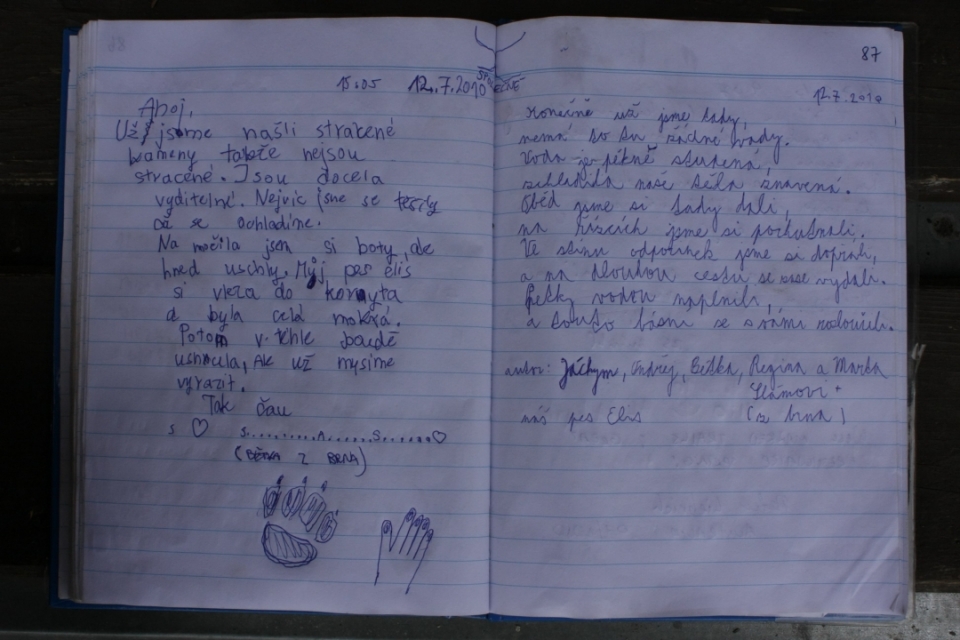 15.05 12.7.2010
Ahoj,
Už jsme našli stracené
kameny takže nejsou
stracené. Jsou docela
vyditelné. Nejvíc jsme se
až se ochladíme.
Na močila jsem si boty, ale
hned uschly. Můj pes elis
si vleza do koryta
a byla celá mokrá.
Potom v téhle boudě
usnula, Ale už mysíme
vyrazit.
Tak čau
s ♡ s.........A......S.......♡
(BĚTKA Z BRNA)
SPOLEČNĚ
87
12.7.2010
Konečně už jsme tady,
nemá to tu žádné vady.
Voda je pěkně studená,
zchladila naše těla znavená.
Oběd jsme si tady dali,
na řízcích jsme si pochutnali.
Ve stínu odpočinek jsme si dopřáli,
a na dlouhou cestu se zase vydali.
Petky vodou naplnili,
a touto básní se s vámi rozloučili.
autoři: Jáchym, Ondřej, Bětka, Regina a Marka
Slámovi +
náš pes Elis (z brna)